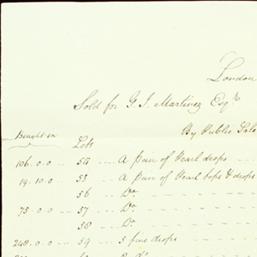 London
Sold for G. I. Martinez Esqr
By Public Sale
Bought in Lots
106.0.0 ... 52 ... A pair of Pearl drops
19.10.0 ... 53 ... A pair of Pearl tops & drops
56 ... Do
75.0.0 ... 57 ... Do
58 ... Do
248.0.0 ... 59 ... 5 fine drops